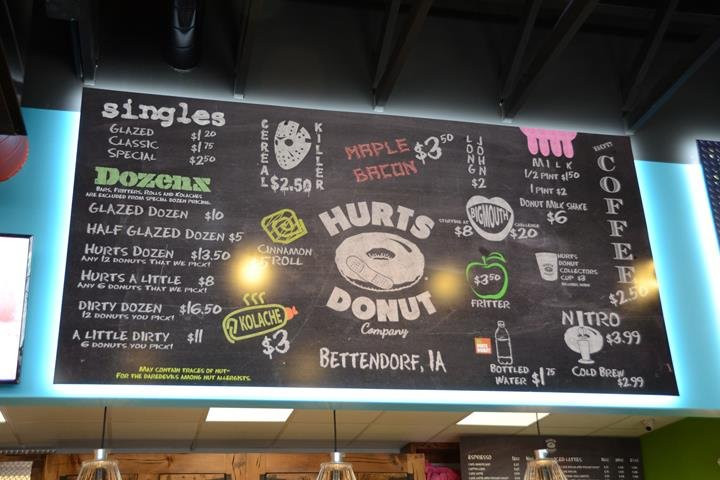 singles
GLAZED $1 20
CLASSIC $1 75
SPECIAL $2 50
Dozens
BARS, FRITTERS, ROLLS AND KOLACHES
ARE EXCLUDED FROM SPECIAL DOZEN PRICING.
GLAZED DOZEN $10
HALF GLAZED DOZEN $5
HURTS DOZEN $13.50
ANY 12 DONUTS THAT WE PICK!
HURTS A LITTLE $8
ANY 6 DONUTS THAT WE PICK!
DIRTY DOZEN $16.50
12 DONUTS YOU PICK!
A LITTLE DIRTY $11
6 DONUTS YOU PICK!
MAY CONTAIN TRACES OF NUT-
FOR THE DAREDEVILS AMONG NUT ALLERGISTS.
CEREAL KILLER
$2.50
CINNAMON
ROLL
KOLACHE
$3
MAPLE
BACON
$3 50
HURTS
DONUT
Company
BETTENDORF, IA
LONG JOHN
$2
STARTING AT
$8
BIGMOUTH
CHALLENGE
$20
$3 50
FRITTER
BOTTLED
WATER $1 75
MILK
1/2 PINT $1 50
1 PINT $2
DONUT MILK SHAKE
$6
HURTS
DONUT
COLLECTORS
CUP $3
HOT!
COFFEE
$2.50
NITRO
$3.99
COLD BREW
$2.99
ESPRESSO
ICED LATTES